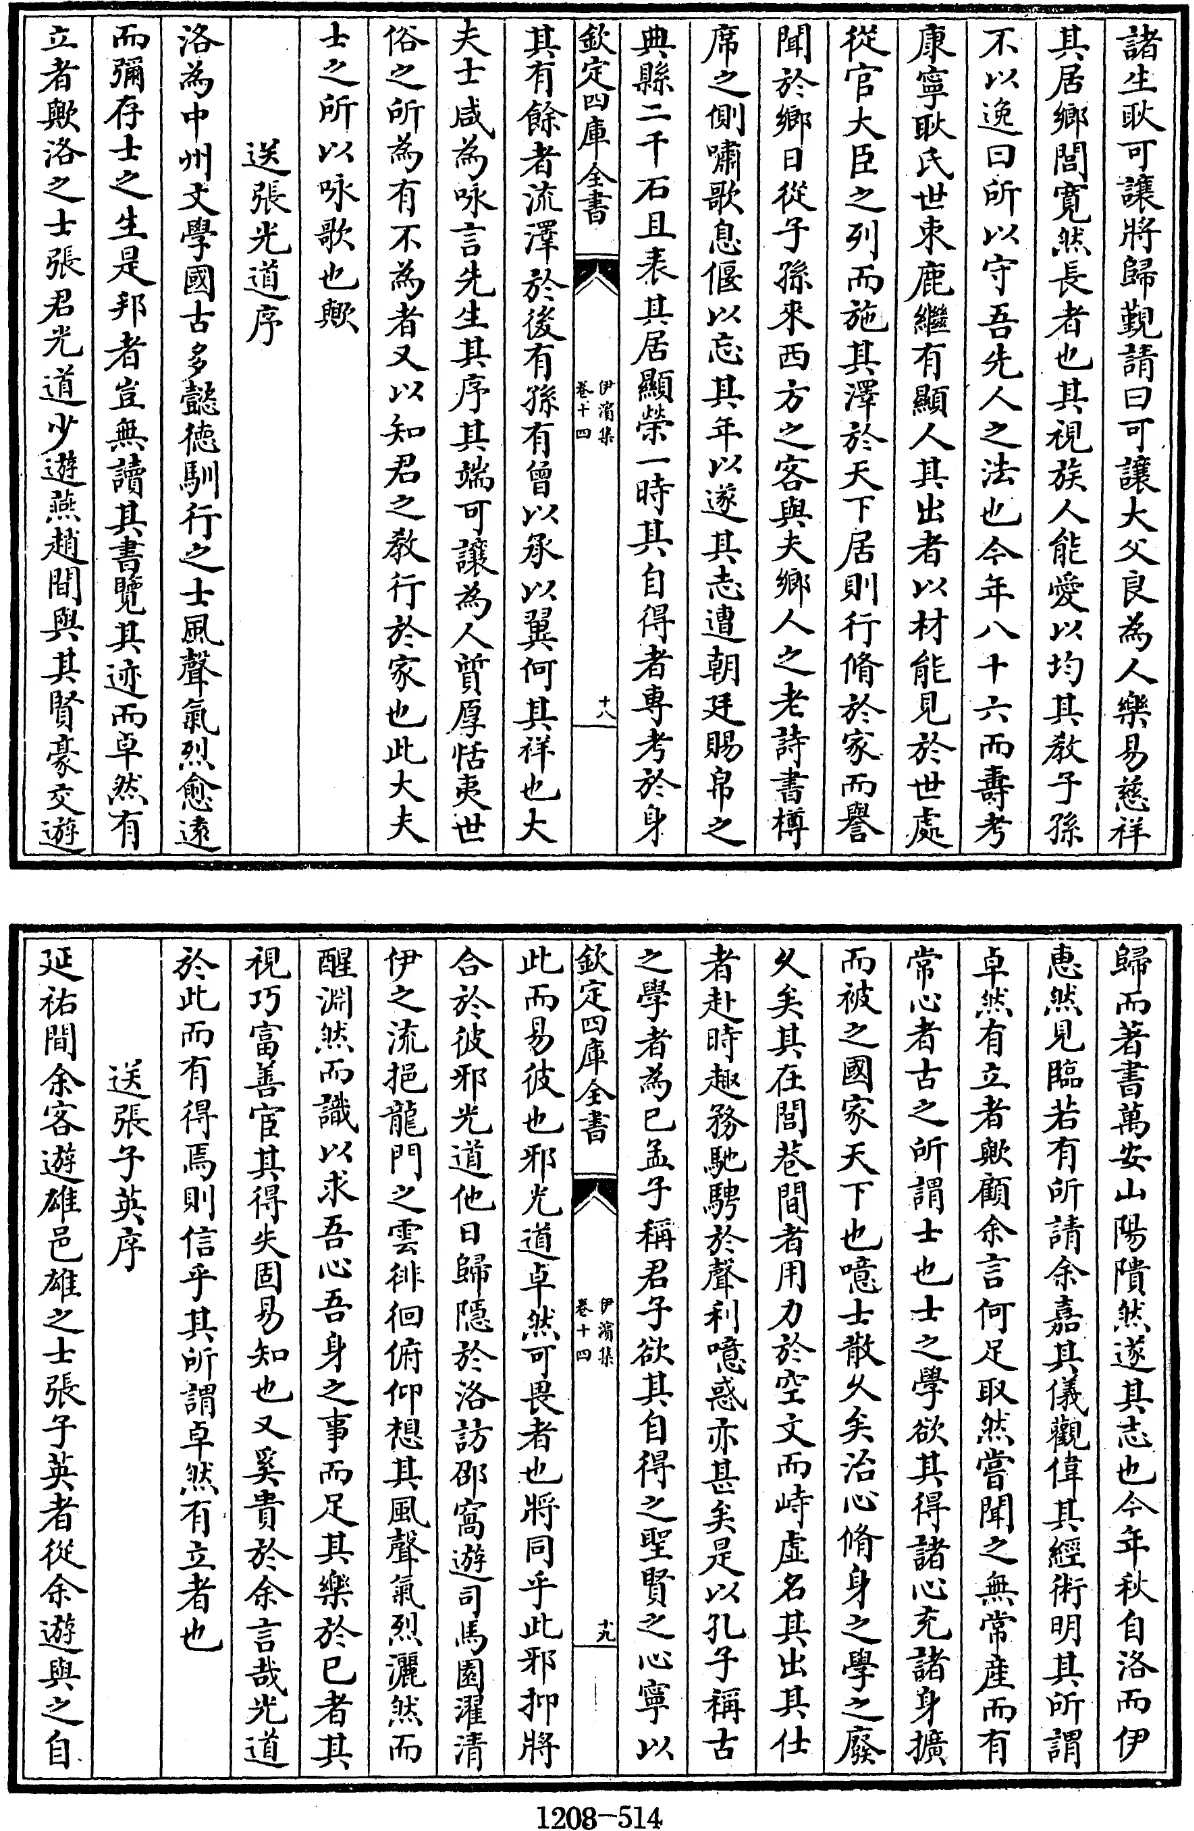 諸生耿可讓將歸覲請曰可讓大父良為人樂易慈祥
其居鄉閭寬然長者也其視族人能愛以均其教子孫
不以逸曰所以守吾先人之法也今年八十六而壽考
康寧耿氏世束鹿繼有顯人其出者以材能見於世處
從官大臣之列而施其澤於天下居則行脩於家而譽
聞於鄉日從子孫來西方之客與夫鄉人之老詩書樽
席之側嘯歌息偃以忘其年以遂其志遭朝廷賜帛之
典縣二千石且表其居顯榮一時其自得者專考於身
欽定四庫全書
伊濱集
卷十四
十八
其有餘者流澤於後有孫有曾以承以翼何其祥也大
夫士咸為咏言先生其序其端可讓為人質厚恬夷世
俗之所為有不為者又以知君之教行於家也此大夫
士之所以咏歌也歟
送張光道序
洛為中州文學國古多懿德馴行之士風聲氣烈愈遠
而彌存士之生是邦者豈無讀其書覽其迹而卓然有
立者歟洛之士張君光道少遊燕趙間與其賢豪交遊
歸而著書萬安山陽隤然遂其志也今年秋自洛而伊
惠然見臨若有所請余嘉其儀觀偉其經術明其所謂
卓然有立者歟顧余言何足取然嘗聞之無常產而有
常心者古之所謂士也士之學欲其得諸心充諸身擴
而被之國家天下也噫士散久矣治心脩身之學之廢
久矣其在閭巷間者用力於空文而峙虛名其出其仕
者赴時趣務馳騁於聲利噫惑亦甚矣是以孔子稱古
之學者為己孟子稱君子欲其自得之聖賢之心寧以
欽定四庫全書
伊濱集
卷十四
十九
此而易彼也邪光道卓然可畏者也將同乎此邪抑將
合於彼邪光道他日歸隱於洛訪邵窩遊司馬園濯清
伊之流挹龍門之雲徘徊俯仰想其風聲氣烈灑然而
醒淵然而識以求吾心吾身之事而足其樂於已者其
視巧富善宦其得失固易知也又奚貴於余言哉光道
於此而有得焉則信乎其所謂卓然有立者也
送張子英序
延祐間余客遊雄邑雄之士張子英者從余遊與之自
1208-514